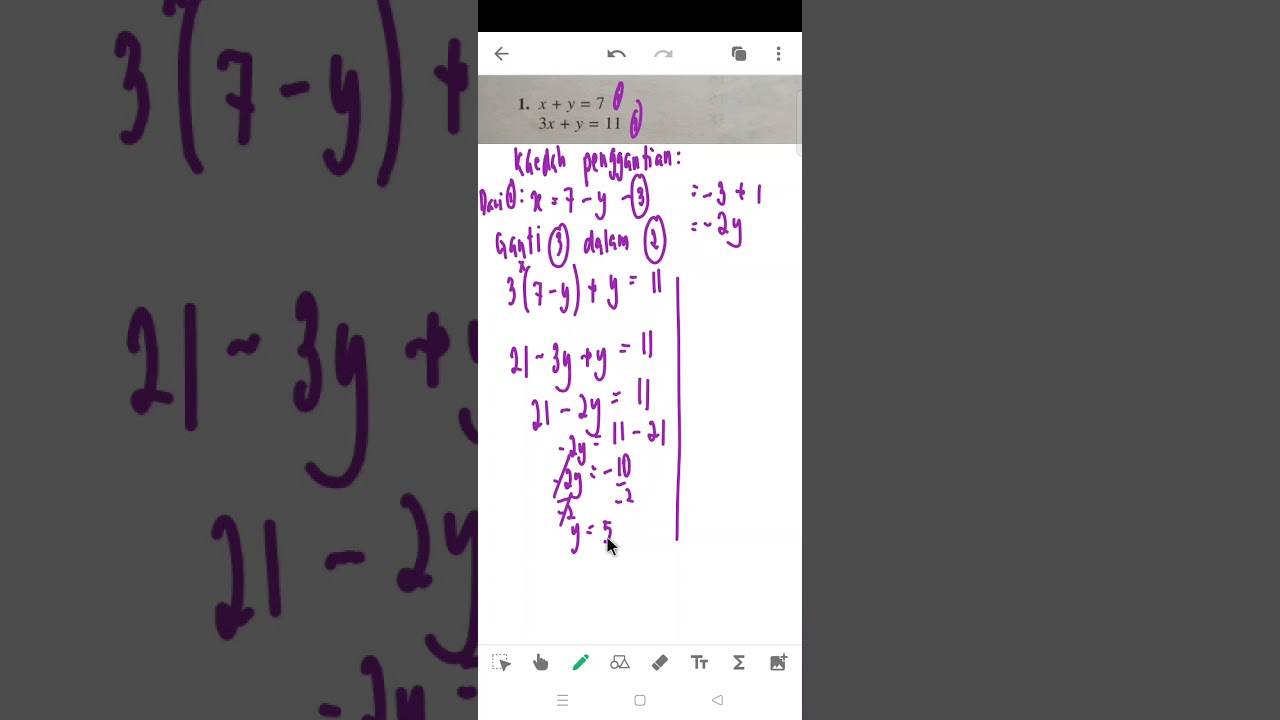 1. x + y = 7 ①
3x + y = 11 ②
Kaedah penggantian:
Dari ①: x = 7 - y - ③
Ganti ③ dalam ②
3(7 - y) + y = 11
21 - 3y + y = 11
21 - 2y = 11
-2y = 11 - 21
-2y = -10
-2 -2
y = 5
= -3 + 1
= -2y
3(7 - y) +
21 - 3y +
21 - 2y
-2y
Tт
Σ